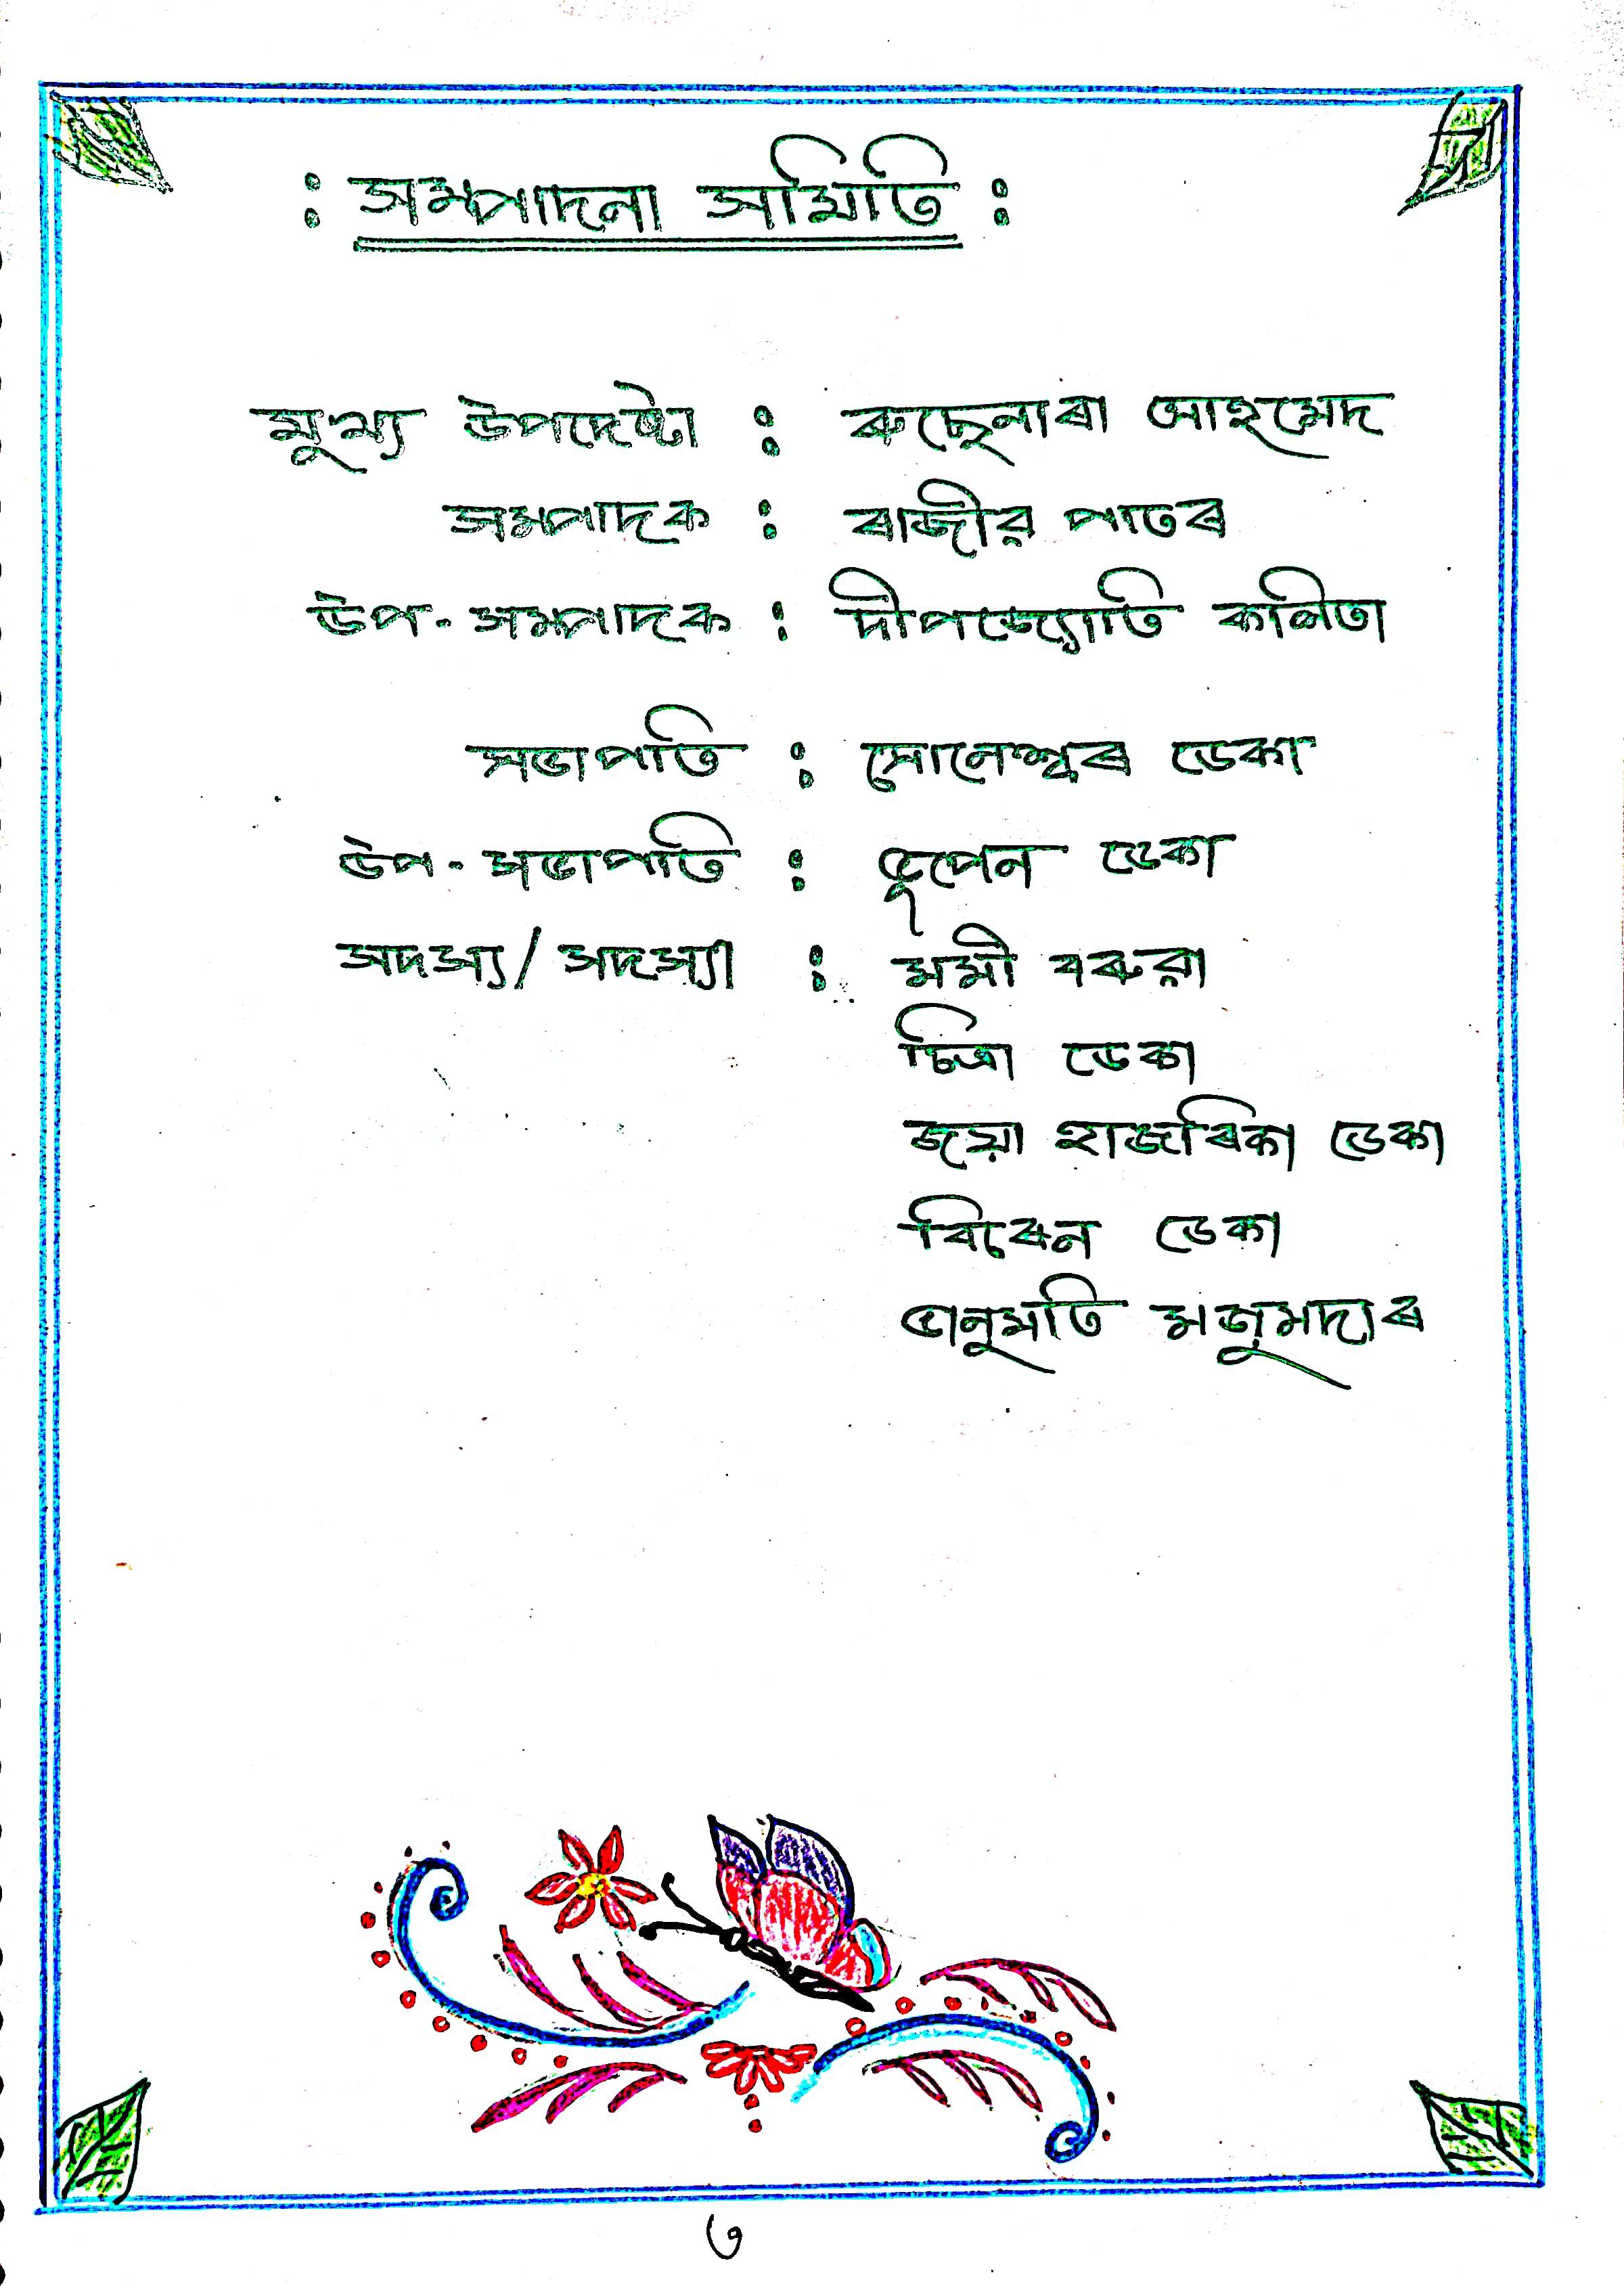 : সম্পাদনা সমিতি :
মুখ্য উপদেষ্টা : ৰুছেনাৰা আহমেদ
সম্পাদক : ৰাজীৱ পাতৰ
উপ-সম্পাদক : দীপজ্যোতি কলিতা
সভাপতি : সোনেশ্বৰ ডেকা
উপ-সভাপতি : ভূপেন ডেকা
সদস্য/সদস্যা : মমী বৰুৱা
চিত্ৰা ডেকা
জয়া হাজৰিকা ডেকা
বিৰেন ডেকা
ভানুমতি মজুমদাৰ
৩